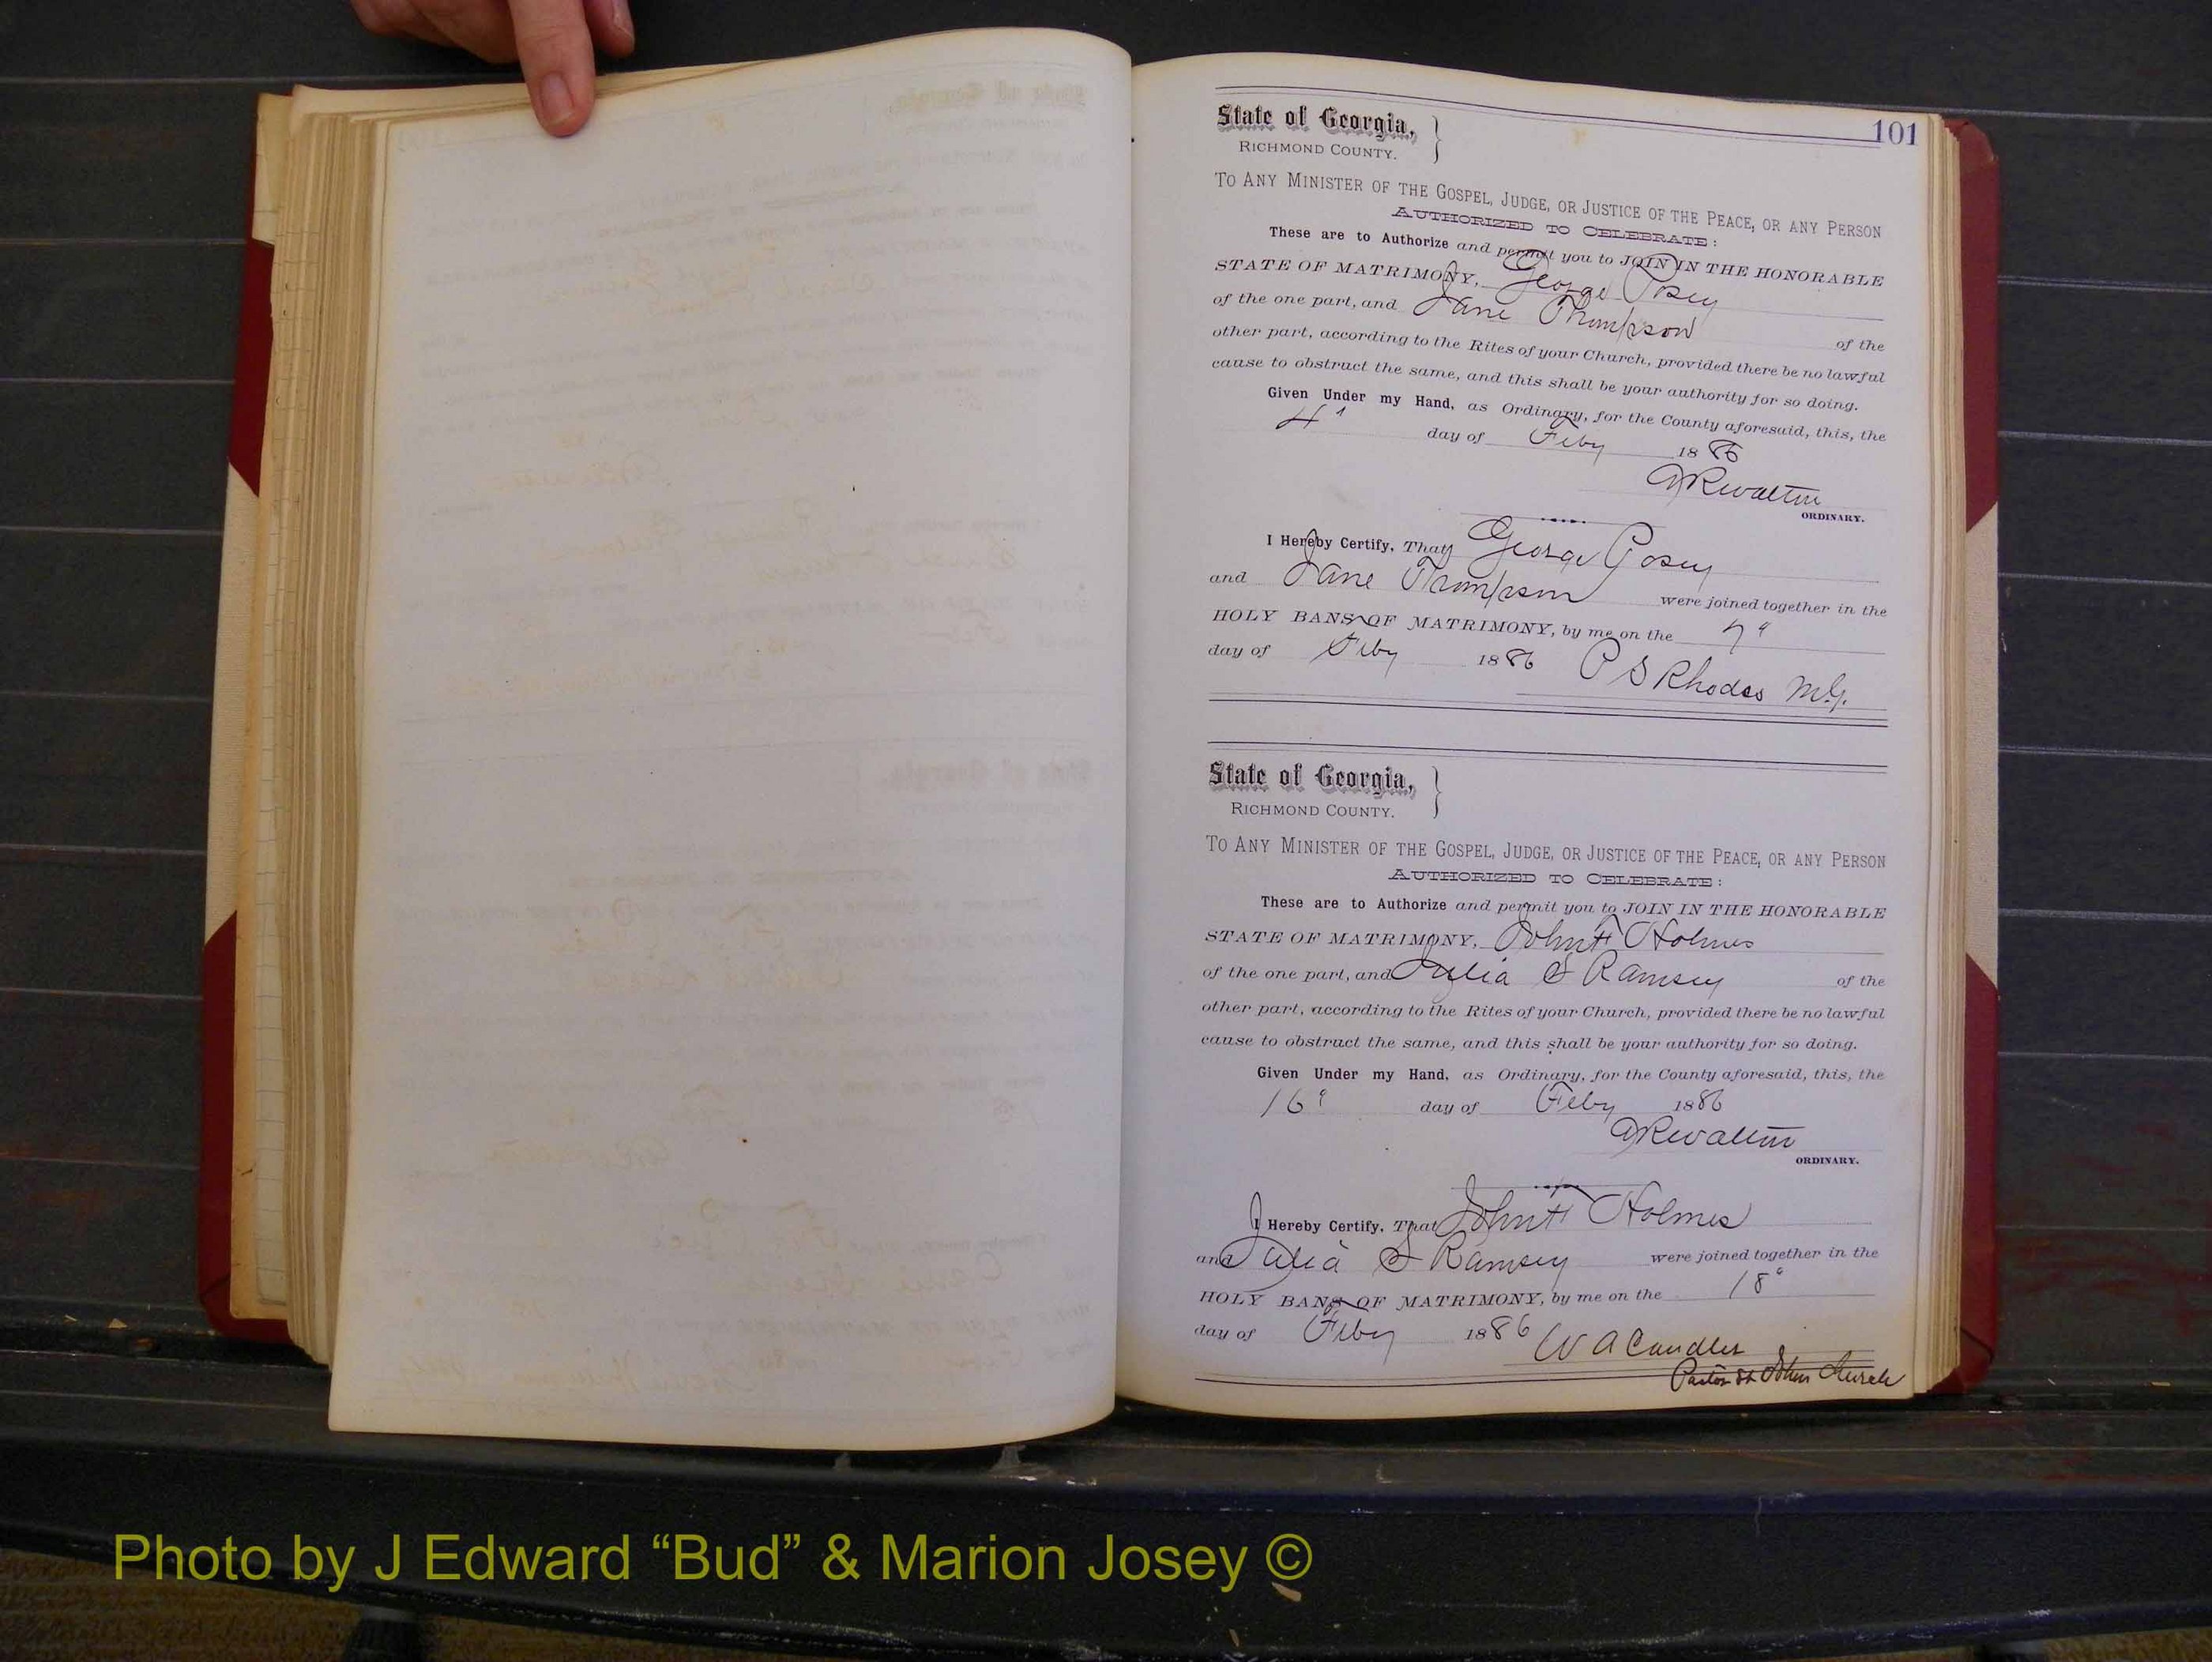 101
State of Georgia,
RICHMOND COUNTY.
TO ANY MINISTER OF THE GOSPEL, JUDGE, OR JUSTICE OF THE PEACE, OR ANY PERSON
AUTHORIZED TO CELEBRATE:
These are to Authorize and permit you to JOIN IN THE HONORABLE
STATE OF MATRIMONY, George Posey
of the one part, and Jane Thompson of the
other part, according to the Rites of your Church, provided there be no lawful
cause to obstruct the same, and this shall be your authority for so doing.
Given Under my Hand, as Ordinary, for the County aforesaid, this, the
4" day of Feby 1886
A R Walton
ORDINARY.
I Hereby Certify, That George Posey
and Jane Thompson were joined together in the
HOLY BANS OF MATRIMONY, by me on the 7"
day of Feby 1886 P S Rhodes M.G.
State of Georgia,
RICHMOND COUNTY.
TO ANY MINISTER OF THE GOSPEL, JUDGE, OR JUSTICE OF THE PEACE, OR ANY PERSON
AUTHORIZED TO CELEBRATE:
These are to Authorize and permit you to JOIN IN THE HONORABLE
STATE OF MATRIMONY, John T Holmes
of the one part, and Julia S Ramsey of the
other part, according to the Rites of your Church, provided there be no lawful
cause to obstruct the same, and this shall be your authority for so doing.
Given Under my Hand, as Ordinary, for the County aforesaid, this, the
16" day of Feby 1886
A R Walton
ORDINARY.
I Hereby Certify, That John T Holmes
and Julia S Ramsey were joined together in the
HOLY BANS OF MATRIMONY, by me on the 18"
day of Feby 1886 W A Candler
Pastor St John Church
Photo by J Edward “Bud” & Marion Josey ©